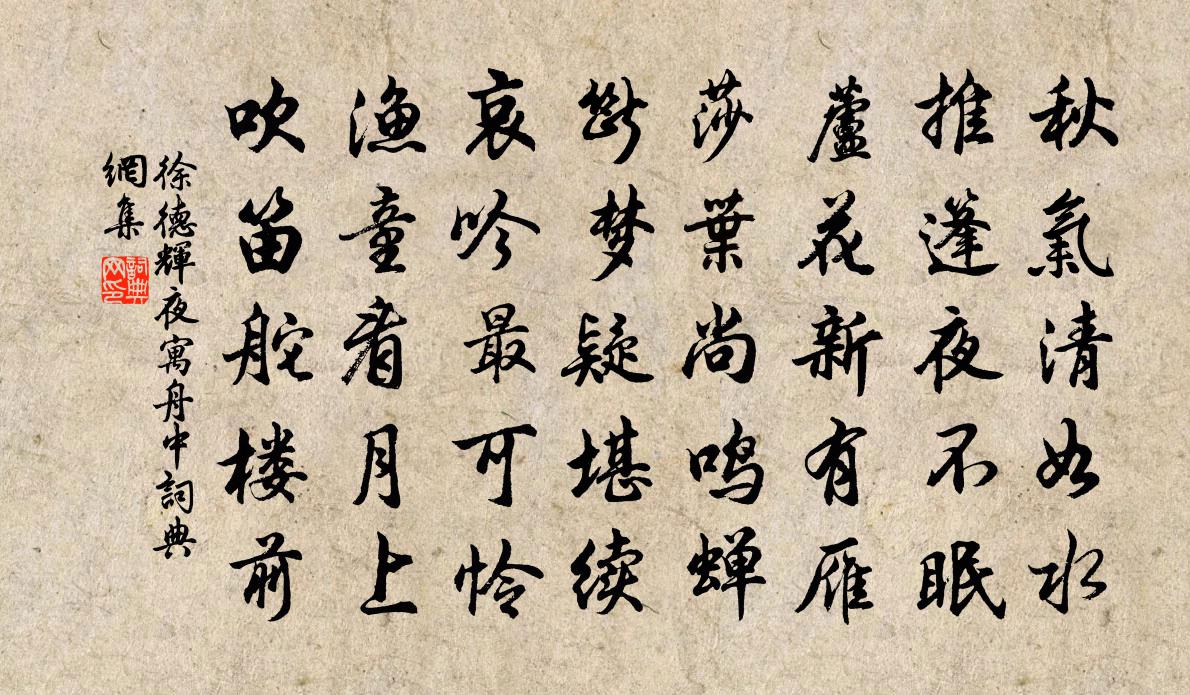 秋氣清如水
推篷夜不眠
蘆花新有雁
莎葉尚鸣蝉
斷梦疑堪续
哀吟最可怜
漁童看月上
吹笛舵楼前
徐德輝夜寓舟中詞典
網集
詞典
网印